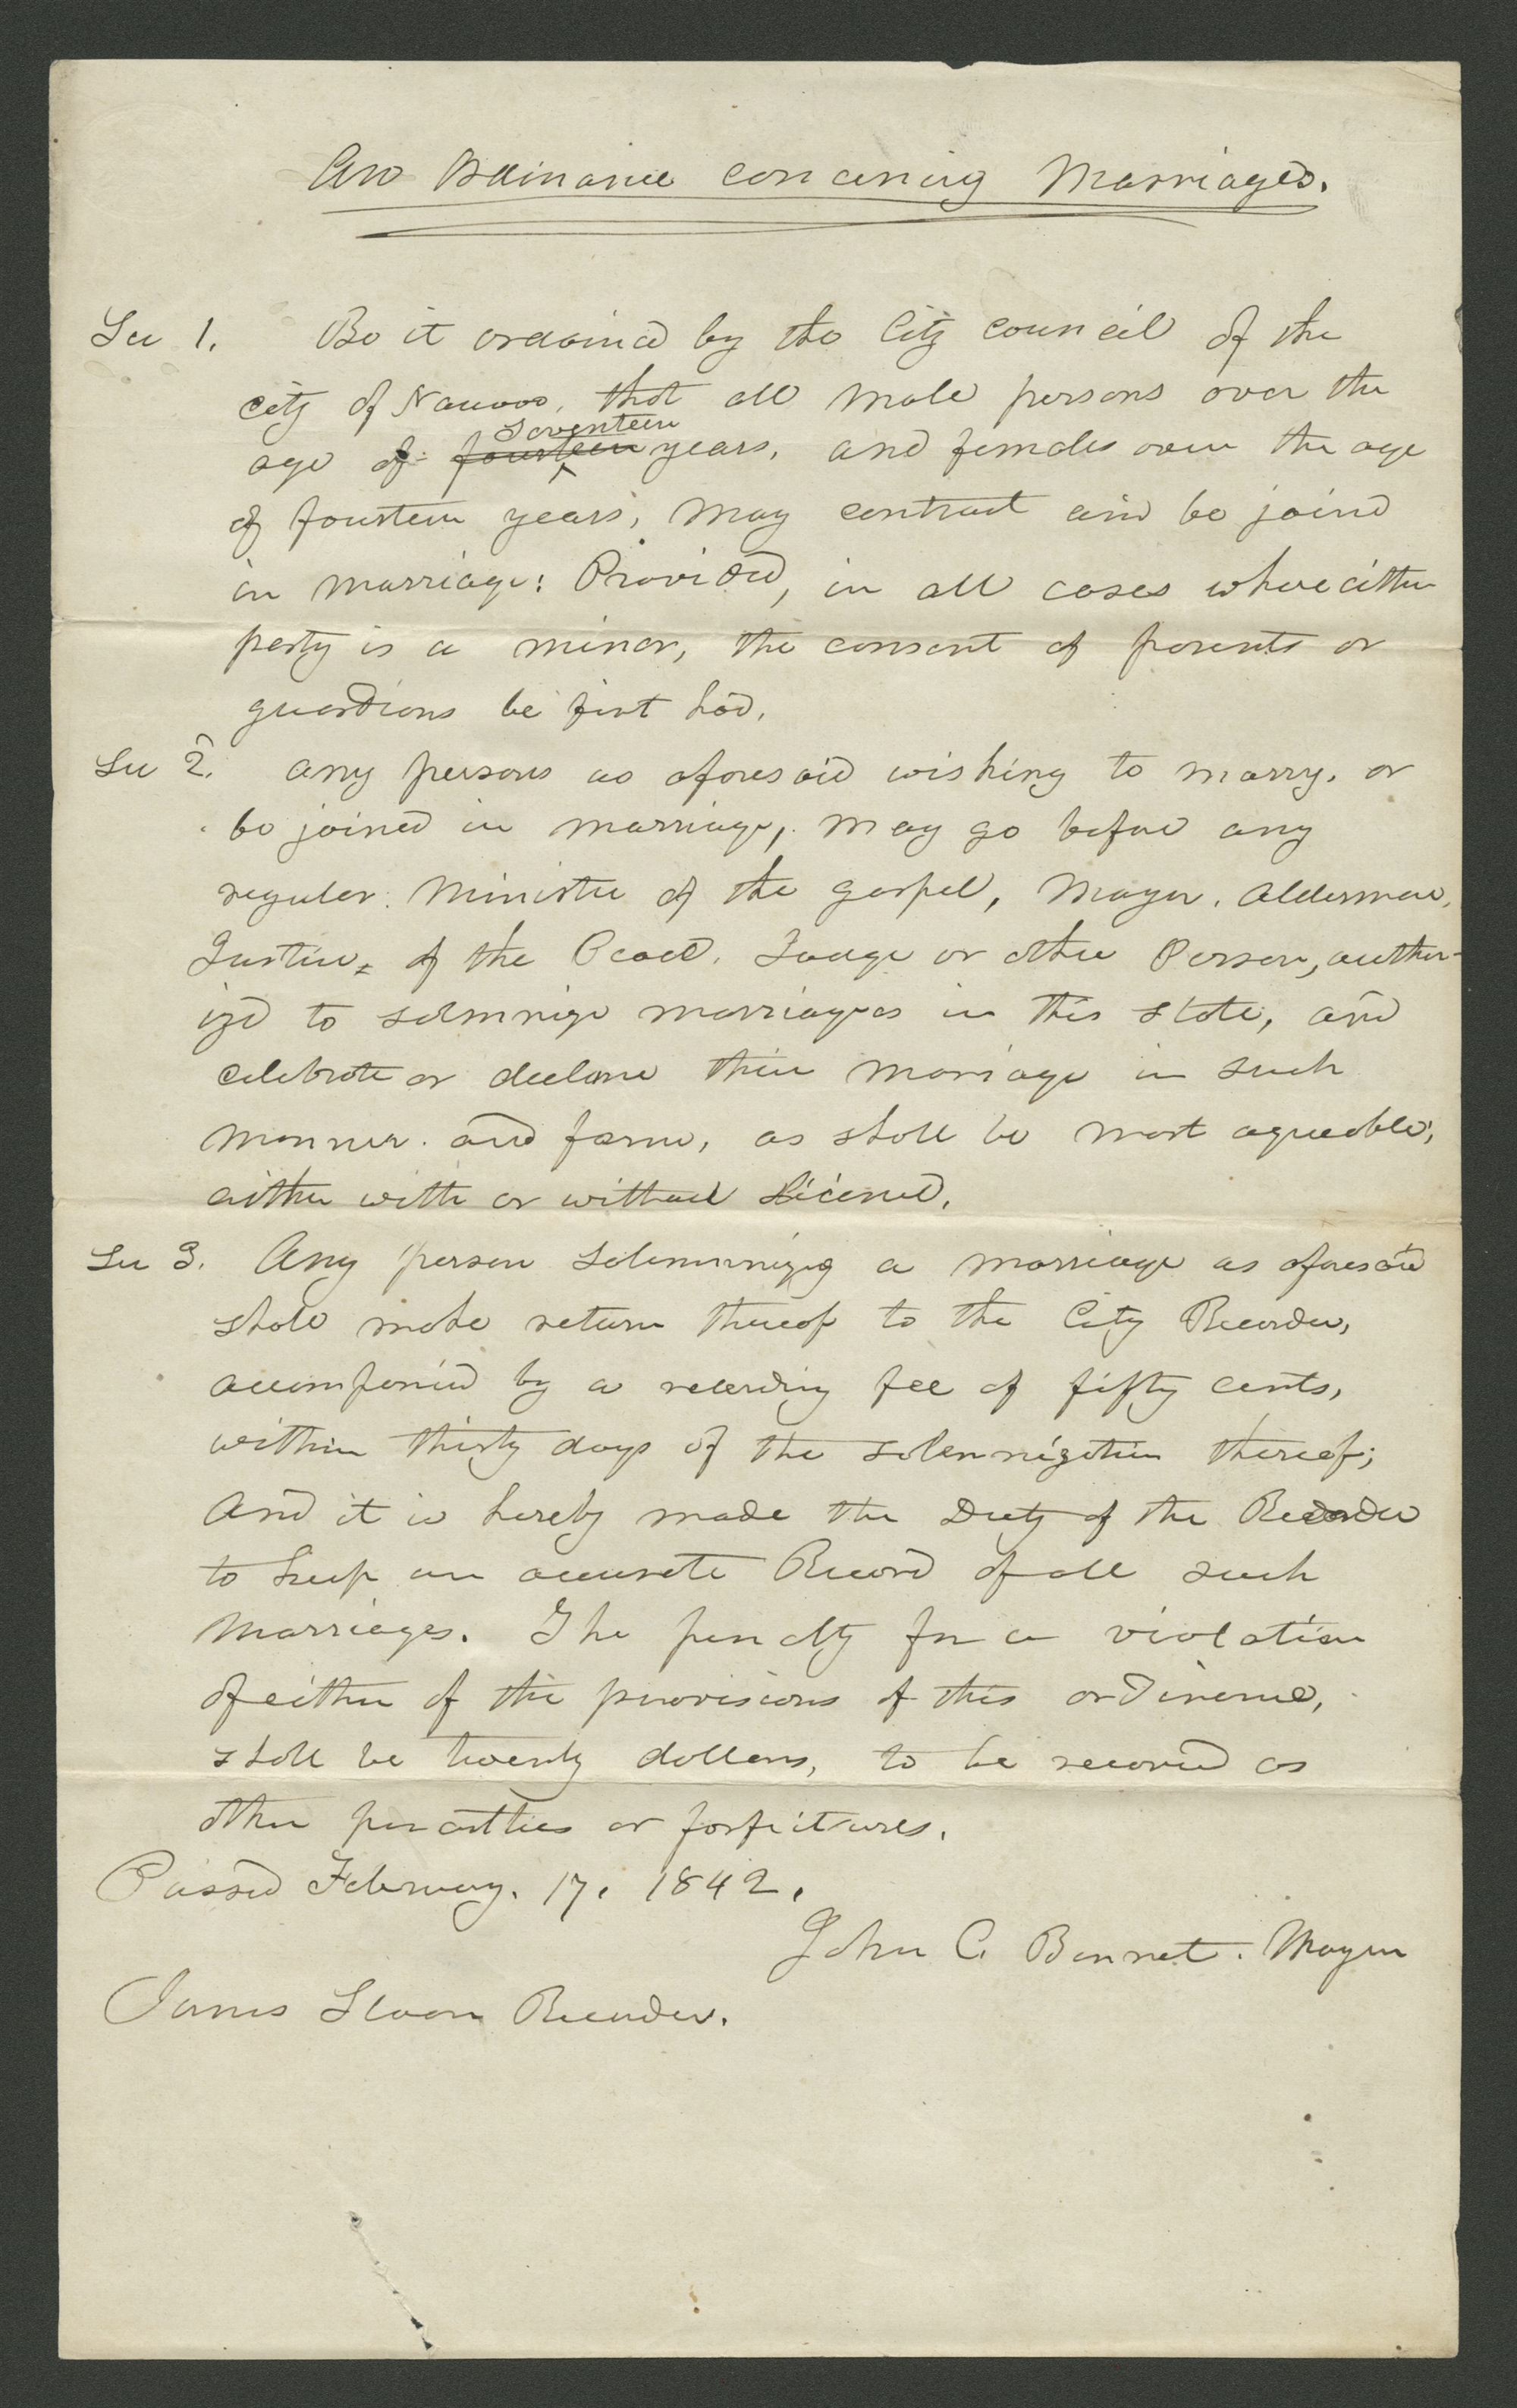 An Ordinance concerning Marriages.
Sec 1. Be it ordained by the City Council of the
city of Nauvoo, that all male persons over the
seventeen
age of fourteen years, and females over the age
of fourteen years, may contract and be joind
in marriage: Provided, in all cases where either
party is a minor, the consent of parents or
guardians be first had.
Sec 2. Any persons as aforesaid wishing to marry, or
be joined in marriage, may go before any
regular Minister of the gospel, Mayor, Alderman,
Justice, of the Peace, Judge or other Person, author-
ized to solemnize marriages in this state, and
celebrate or declare their marriage in such
manner and form, as shall be most agreeable,
either with or without License.
Sec 3. Any person solemnizing a marriage as aforesaid
shall make return thereof to the City Recorder,
accompanied by a recording fee of fifty cents,
within thirty days of the solemnization thereof;
And it is hereby made the Duty of the Recorder
to keep an accurate Record of all such
Marriages. The penalty for a violation
of either of the provisions of this ordinance,
shall be twenty dollars, to be recovered as
other penalties or forfeitures.
Passed February. 17, 1842.
John C. Bennet. Mayor
James Sloan Recorder.